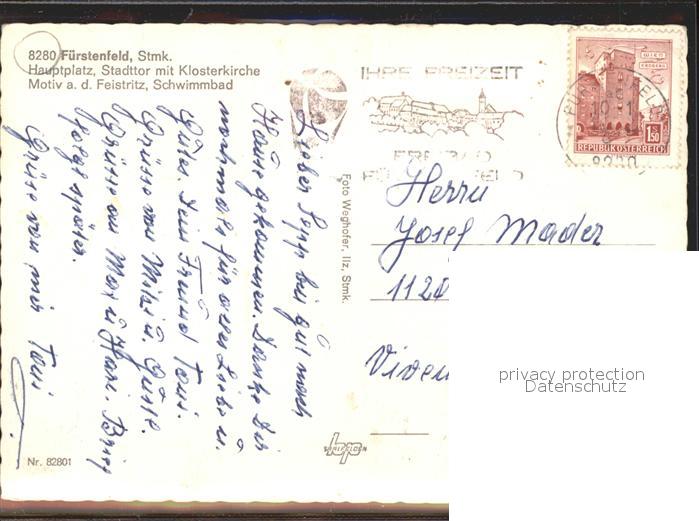 8280 Fürstenfeld, Stmk.
Hauptplatz, Stadttor mit Klosterkirche
Motiv a. d. Feistritz, Schwimmbad
Lieber Sepp bin gut nach
Hause gekommen. Danke Dir
nochmals für alles Liebe u.
Gute. Dein Freund Toni.
Grüsse von Mitzi u. Günter.
Grüsse an Max u. Hani. Brief
folgt später.
Grüsse von mir Toni
Nr. 82801
Foto Weghofer, Ilz, Stmk.
IHRE FREIZEIT
FREIBAD
WIEN
ERDBERG
1.50
REPUBLIK ÖSTERREICH
8280
Herrn
Josef Mader
1120
privacy protection
Datenschutz